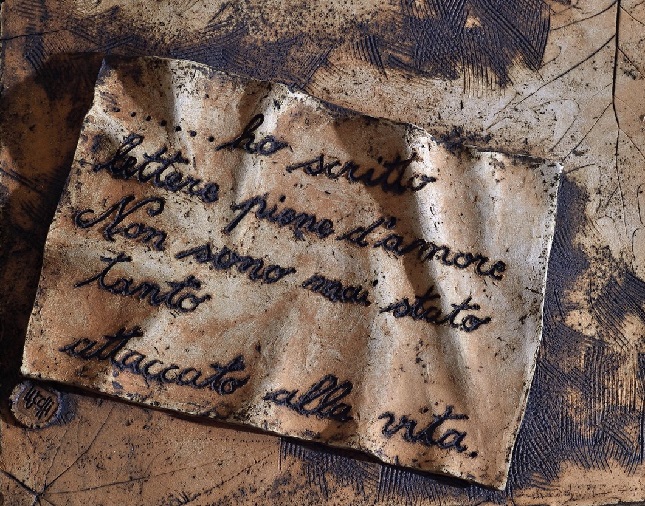 ......ho scritto
lettere piene d'amore
Non sono mai stato
tanto
attaccato alla vita.